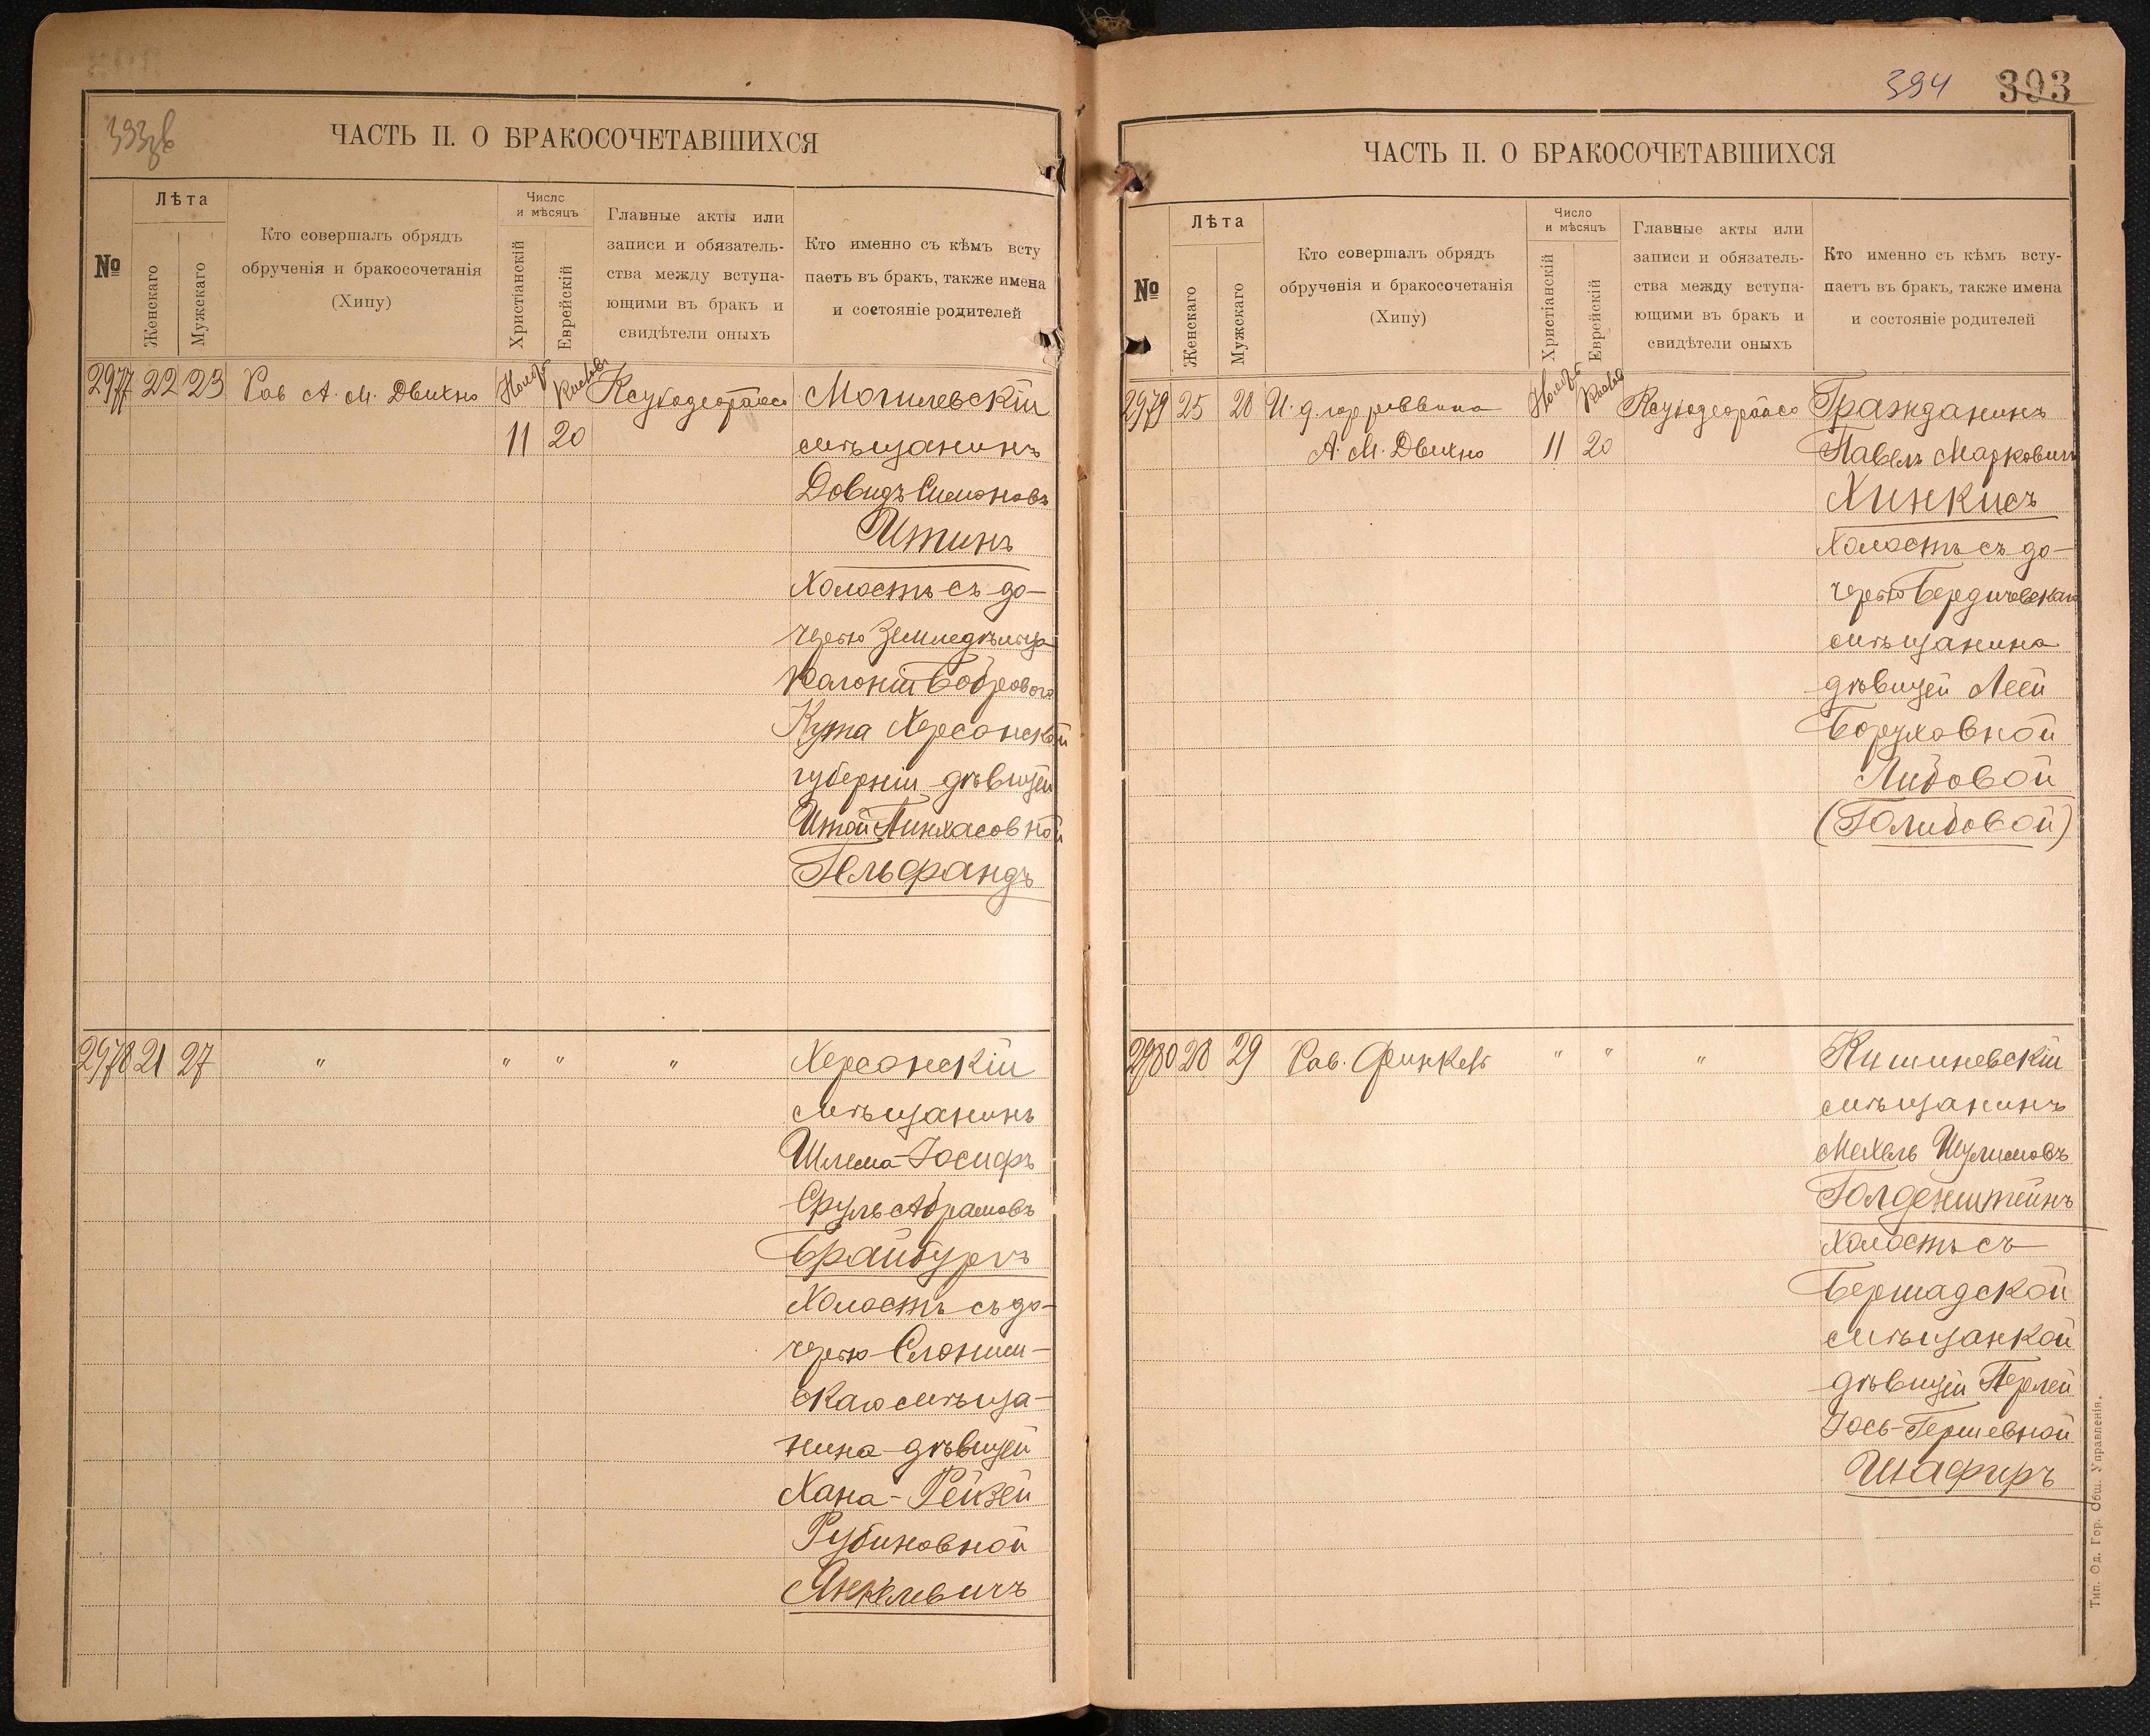 393 зв
ЧАСТЬ II. О БРАКОСОЧЕТАВШИХСЯ
№
Лѣта
Женскаго
Мужскаго
Кто совершалъ обрядъ
обрученія и бракосочетанія
(Хипу)
Число
и мѣсяцъ
Христіанскій
Еврейскій
Главные акты или
записи и обязатель-
ства между вступа-
ющими въ бракъ и
свидѣтели оныхъ
Кто именно съ кѣмъ всту
паетъ въ бракъ, также имена
и состояніе родителей
2977 22 23 Рав А. М. Двихно Нояб Кислев Ксубодеорайсо Могилевскій
11 20 мѣщанинъ
Довидъ Симоновъ
Итинъ
Холостъ съ до-
черью Земледѣльца
Колоніи Бобрового
Кута Херсонской
губерніи дѣвицей
Итой Пинхасовной
Гельфандъ
2978 21 27 " " " " Херсонскій
мѣщанинъ
Шлема-Іосифъ
Сруль Абрамовъ
Брайбургъ
Холостъ съ до-
черью Слоним-
скаго мѣща-
нина дѣвицей
Хана-Рейзей
Рубиновной
Янкелевичъ
394 393
ЧАСТЬ II. О БРАКОСОЧЕТАВШИХСЯ
№
Лѣта
Женскаго
Мужскаго
Кто совершалъ обрядъ
обрученія и бракосочетанія
(Хипу)
Число
и мѣсяцъ
Христіанскій
Еврейскій
Главные акты или
записи и обязатель-
ства между вступа-
ющими въ бракъ и
свидѣтели оныхъ
Кто именно съ кѣмъ всту-
паетъ въ бракъ, также имена
и состояніе родителей
2979 25 28 И. д. гор раввина Нояб Кислев Ксубодеорайсо Гражданинъ
А. М. Двихно 11 20 Павелъ Марковичъ
Хинкисъ
Холостъ съ до-
черью Бердичевскаго
мѣщанина
дѣвицей Леей
Боруховной
Либовой
(Голибовой)
2980 28 29 Рав. Финкель " " " Кишиневскій
мѣщанинъ
Мехель Шулимовъ
Голденштейнъ
Холостъ съ
Бершадской
мѣщанкой
дѣвицей Перлей
Іось-Гершевной
Шафиръ
Тип. Од. Гор. Общ. Управленія.